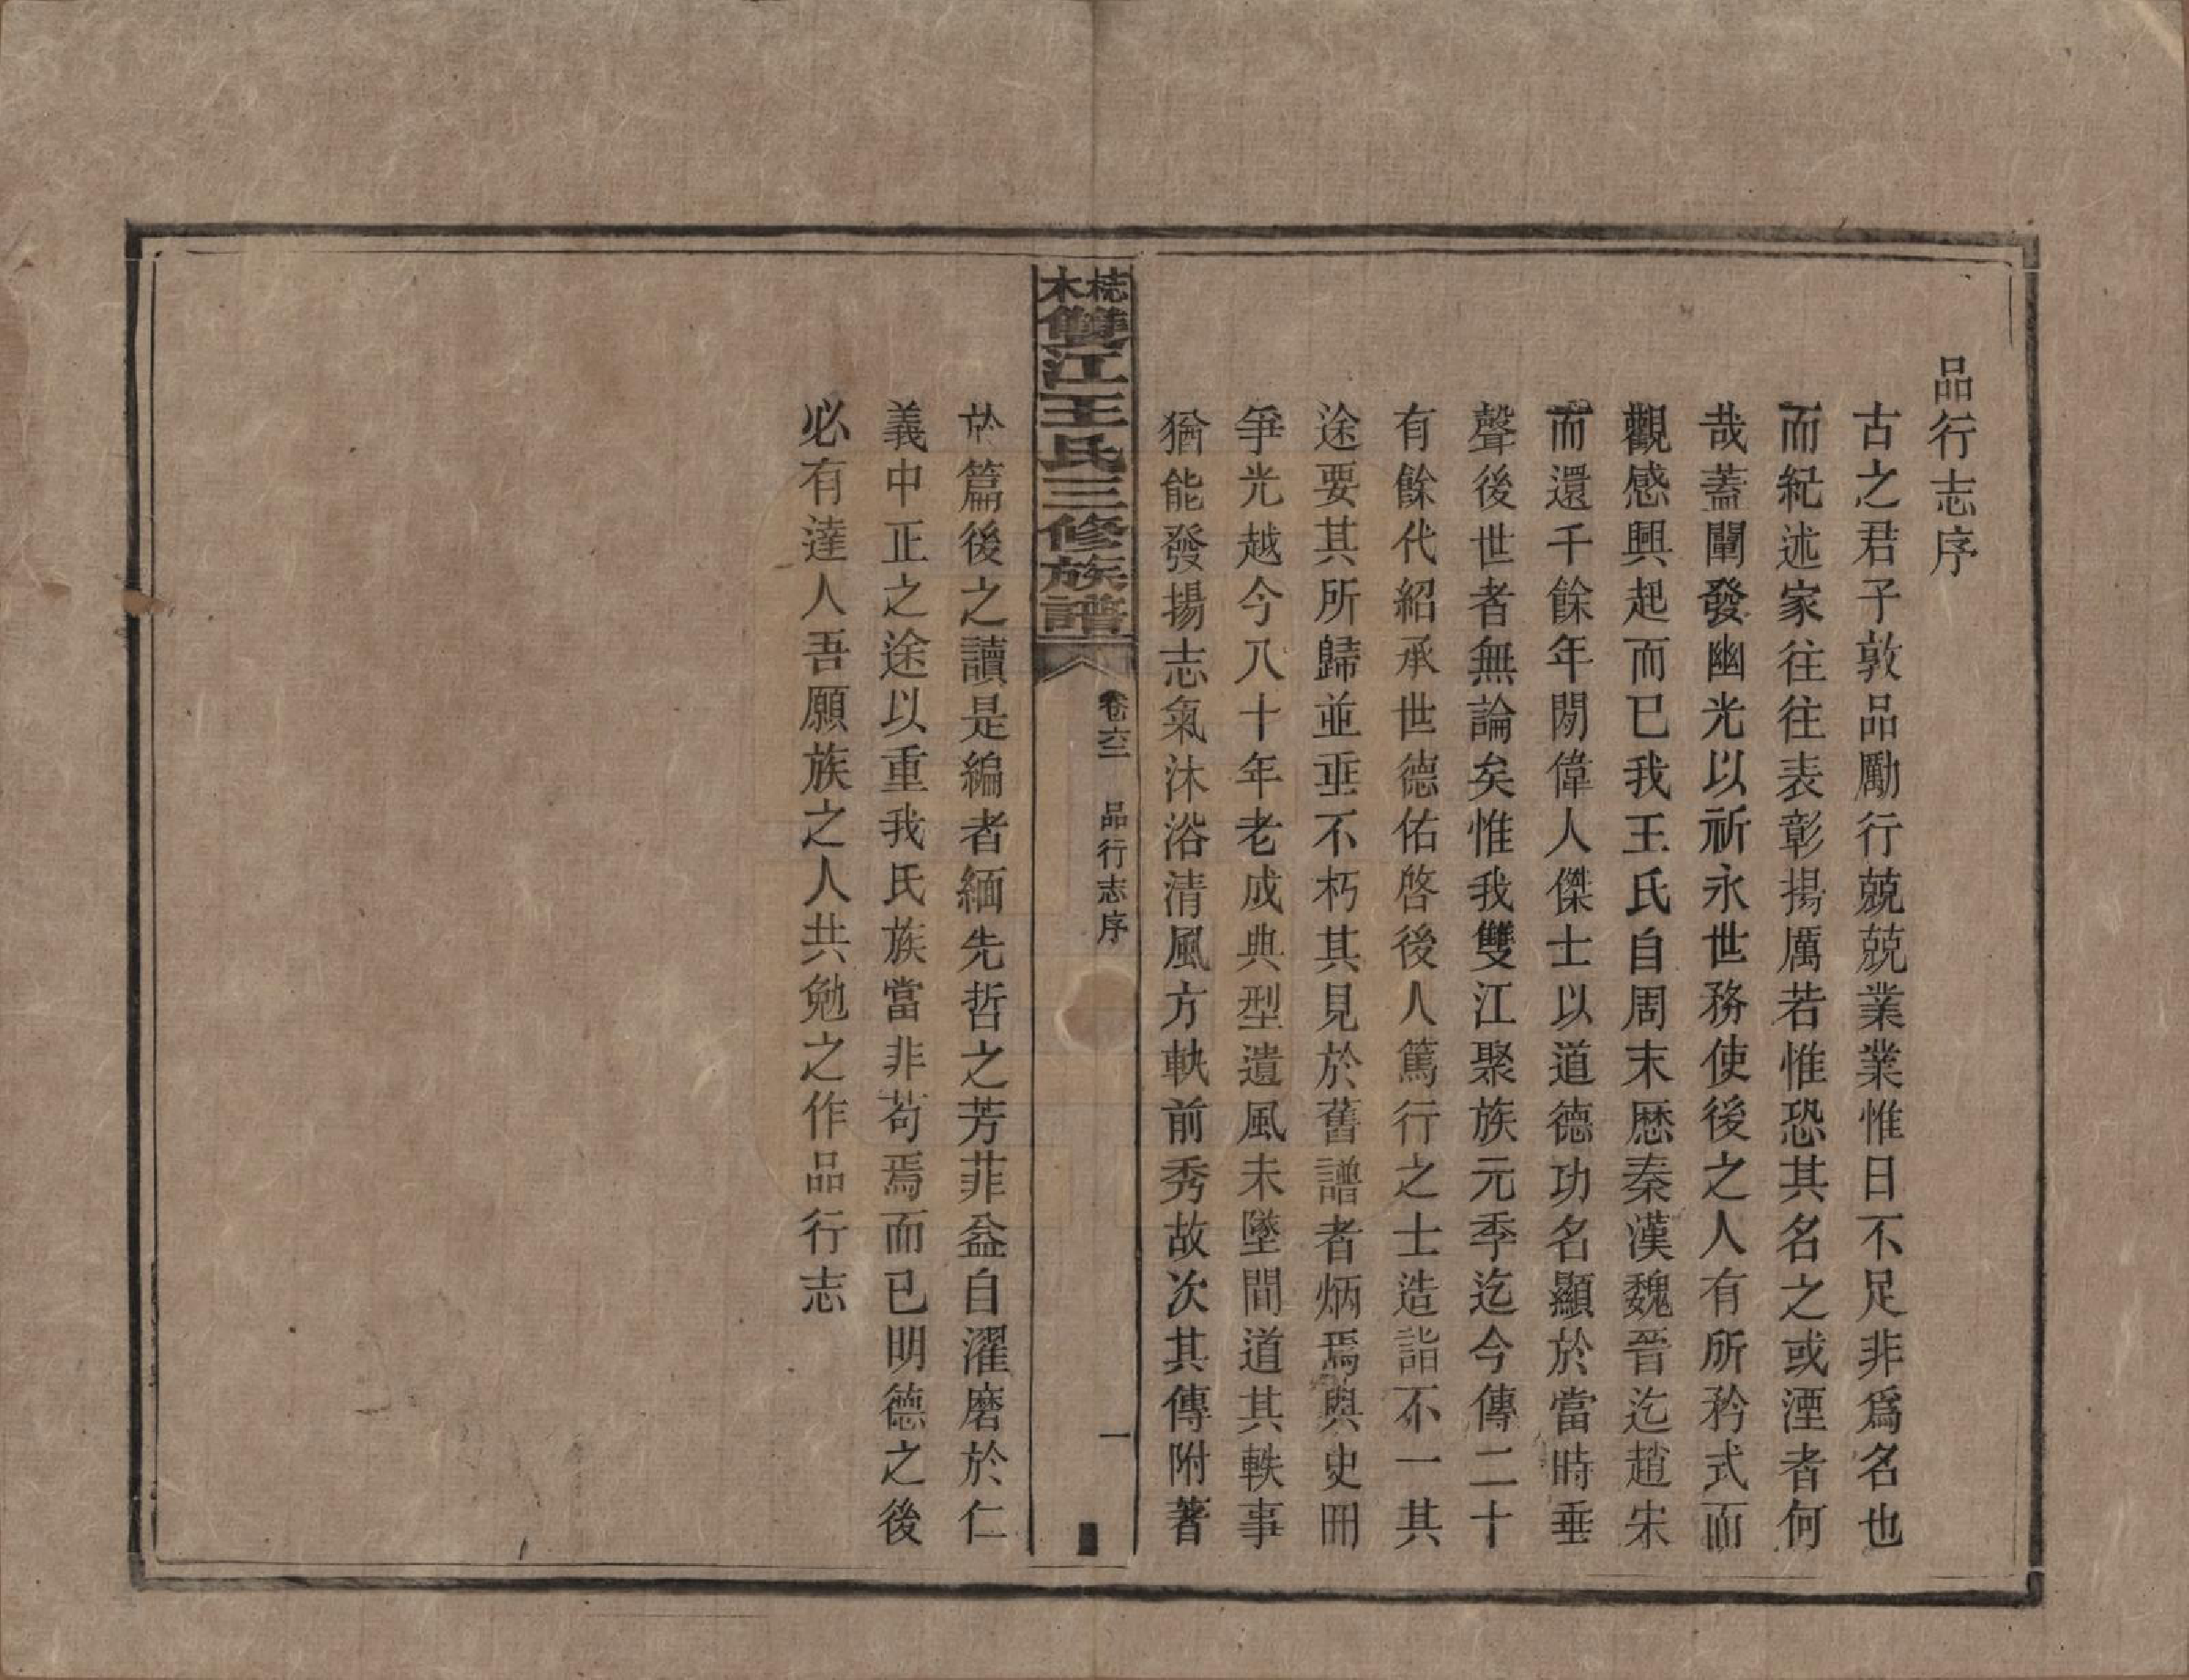 品行志序
古之君子敦品勵行兢兢業業惟日不足非爲名也
而紀述家往往表彰揚厲若惟恐其名之或湮者何
哉蓋闡發幽光以祈永世務使後之人有所矜式而
觀感興起而已我王氏自周末歷秦漢魏晉迄趙宋
而還千餘年閒偉人傑士以道德功名顯於當時垂
聲後世者無論矣惟我雙江聚族元季迄今傳二十
有餘代紹承世德佑啓後人篤行之士造詣不一其
途要其所歸並垂不朽其見於舊譜者炳焉與史冊
爭光越今八十年老成典型遺風未墜間道其軼事
猶能發揚志氣沐浴清風方軌前秀故次其傳附著
木梽雙江王氏三修族譜
卷六二 品行志序 一
於篇後之讀是編者緬先哲之芳菲益自濯磨於仁
義中正之途以重我氏族當非苟焉而已明德之後
必有達人吾願族之人共勉之作品行志